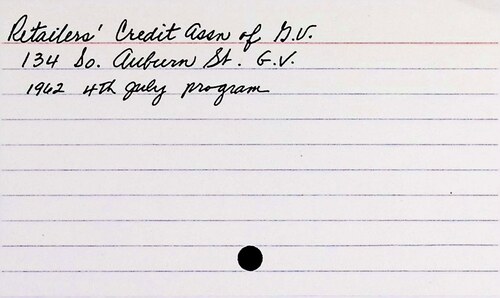 Retailers' Credit Assn of G.V.
134 So. Auburn St. G.V.
1962 4th July program